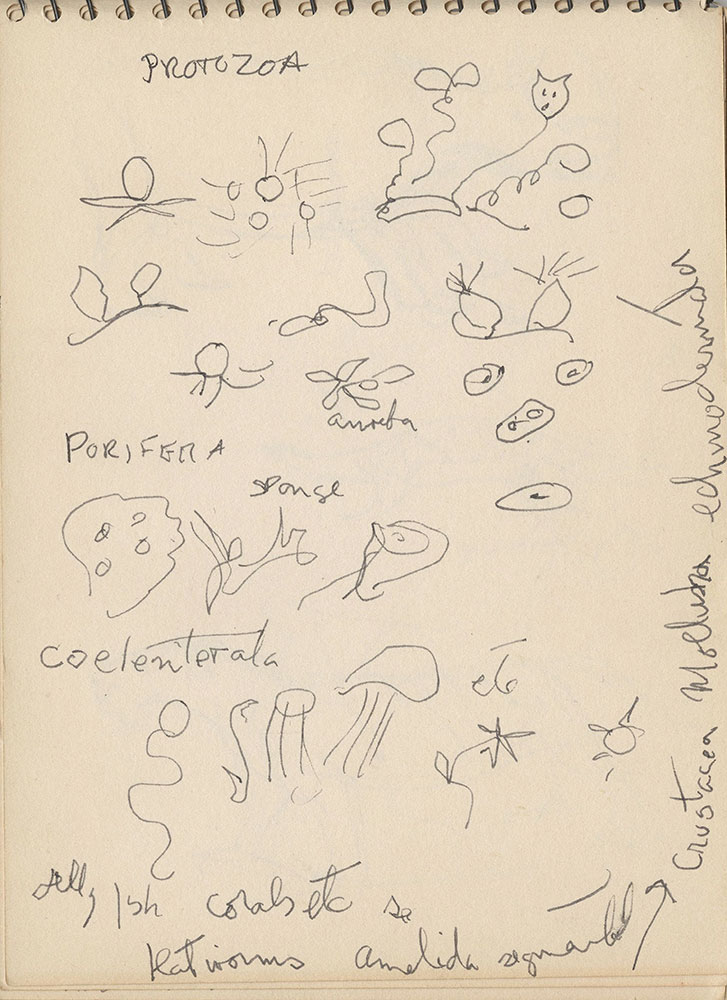 PROTOZOA
amoeba
PORIFERA
sponge
Coelenterata
etc
Jelly fish corals etc
flatworms annelida segmented
Crustacea Mollusca echinoderma